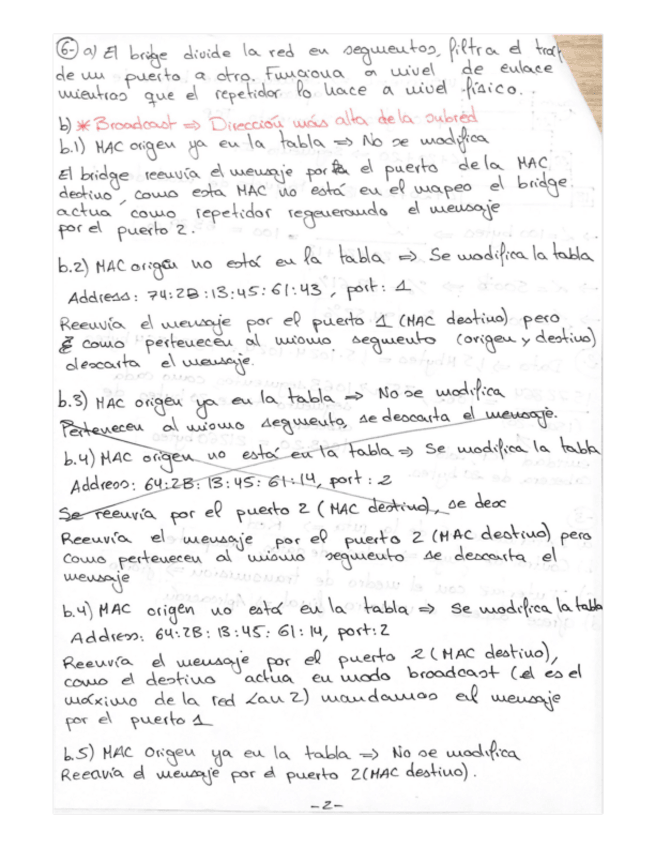 6- a) El brige divide la red en segmentos, filtra el traf
de un puerto a otro. Funciona a nivel de enlace
mientras que el repetidor lo hace a nivel físico.
b) * Broadcast => Dirección más alta de la subred
b.1) MAC origen ya en la tabla => No se modifica
El bridge reenvía el mensaje por el puerto de la MAC
destino, como esta MAC no está en el mapeo el bridge
actua como repetidor regenerando el mensaje
por el puerto 2.
b.2) MAC origen no está en la tabla => Se modifica la tabla
Address: 74:2B:13:45:61:43, port: 1
Reenvía el mensaje por el puerto 1 (MAC destino) pero
como pertenecen al mismo segmento (origen y destino)
descarta el mensaje.
b.3) MAC origen ya en la tabla => No se modifica
Pertenecen al mismo segmento, se descarta el mensaje.
b.4) MAC origen no está en la tabla => Se modifica la tabla
Address: 64:2B:13:45:61:14, port: 2
Se reenvía por el puerto 2 (MAC destino), se desc
Reenvía el mensaje por el puerto 2 (MAC destino) pero
como pertenecen al mismo segmento se descarta el
mensaje
b.4) MAC origen no está en la tabla => Se modifica la tabla
Address: 64:2B:13:45:61:14, port:2
Reenvía el mensaje por el puerto 2 (MAC destino),
como el destino actua en modo broadcast (el es el
máximo de la red Lan 2) mandamos el mensaje
por el puerto 1
b.5) MAC Origen ya en la tabla => No se modifica
Reenvía el mensaje por el puerto 2 (MAC destino).
-2-